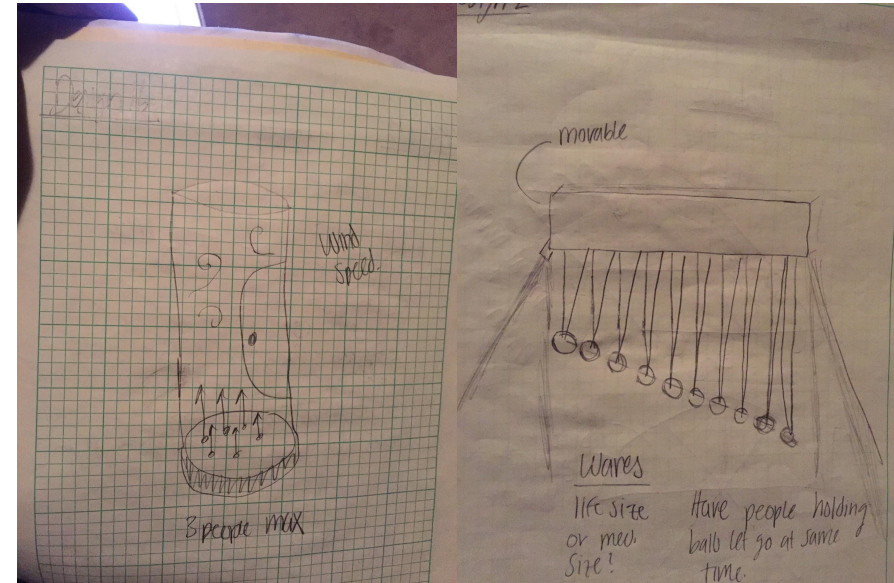 Wind
speed.
3 people max
movable
Waves
life size
or med.
size?
Have people holding
balls let go at same
time.